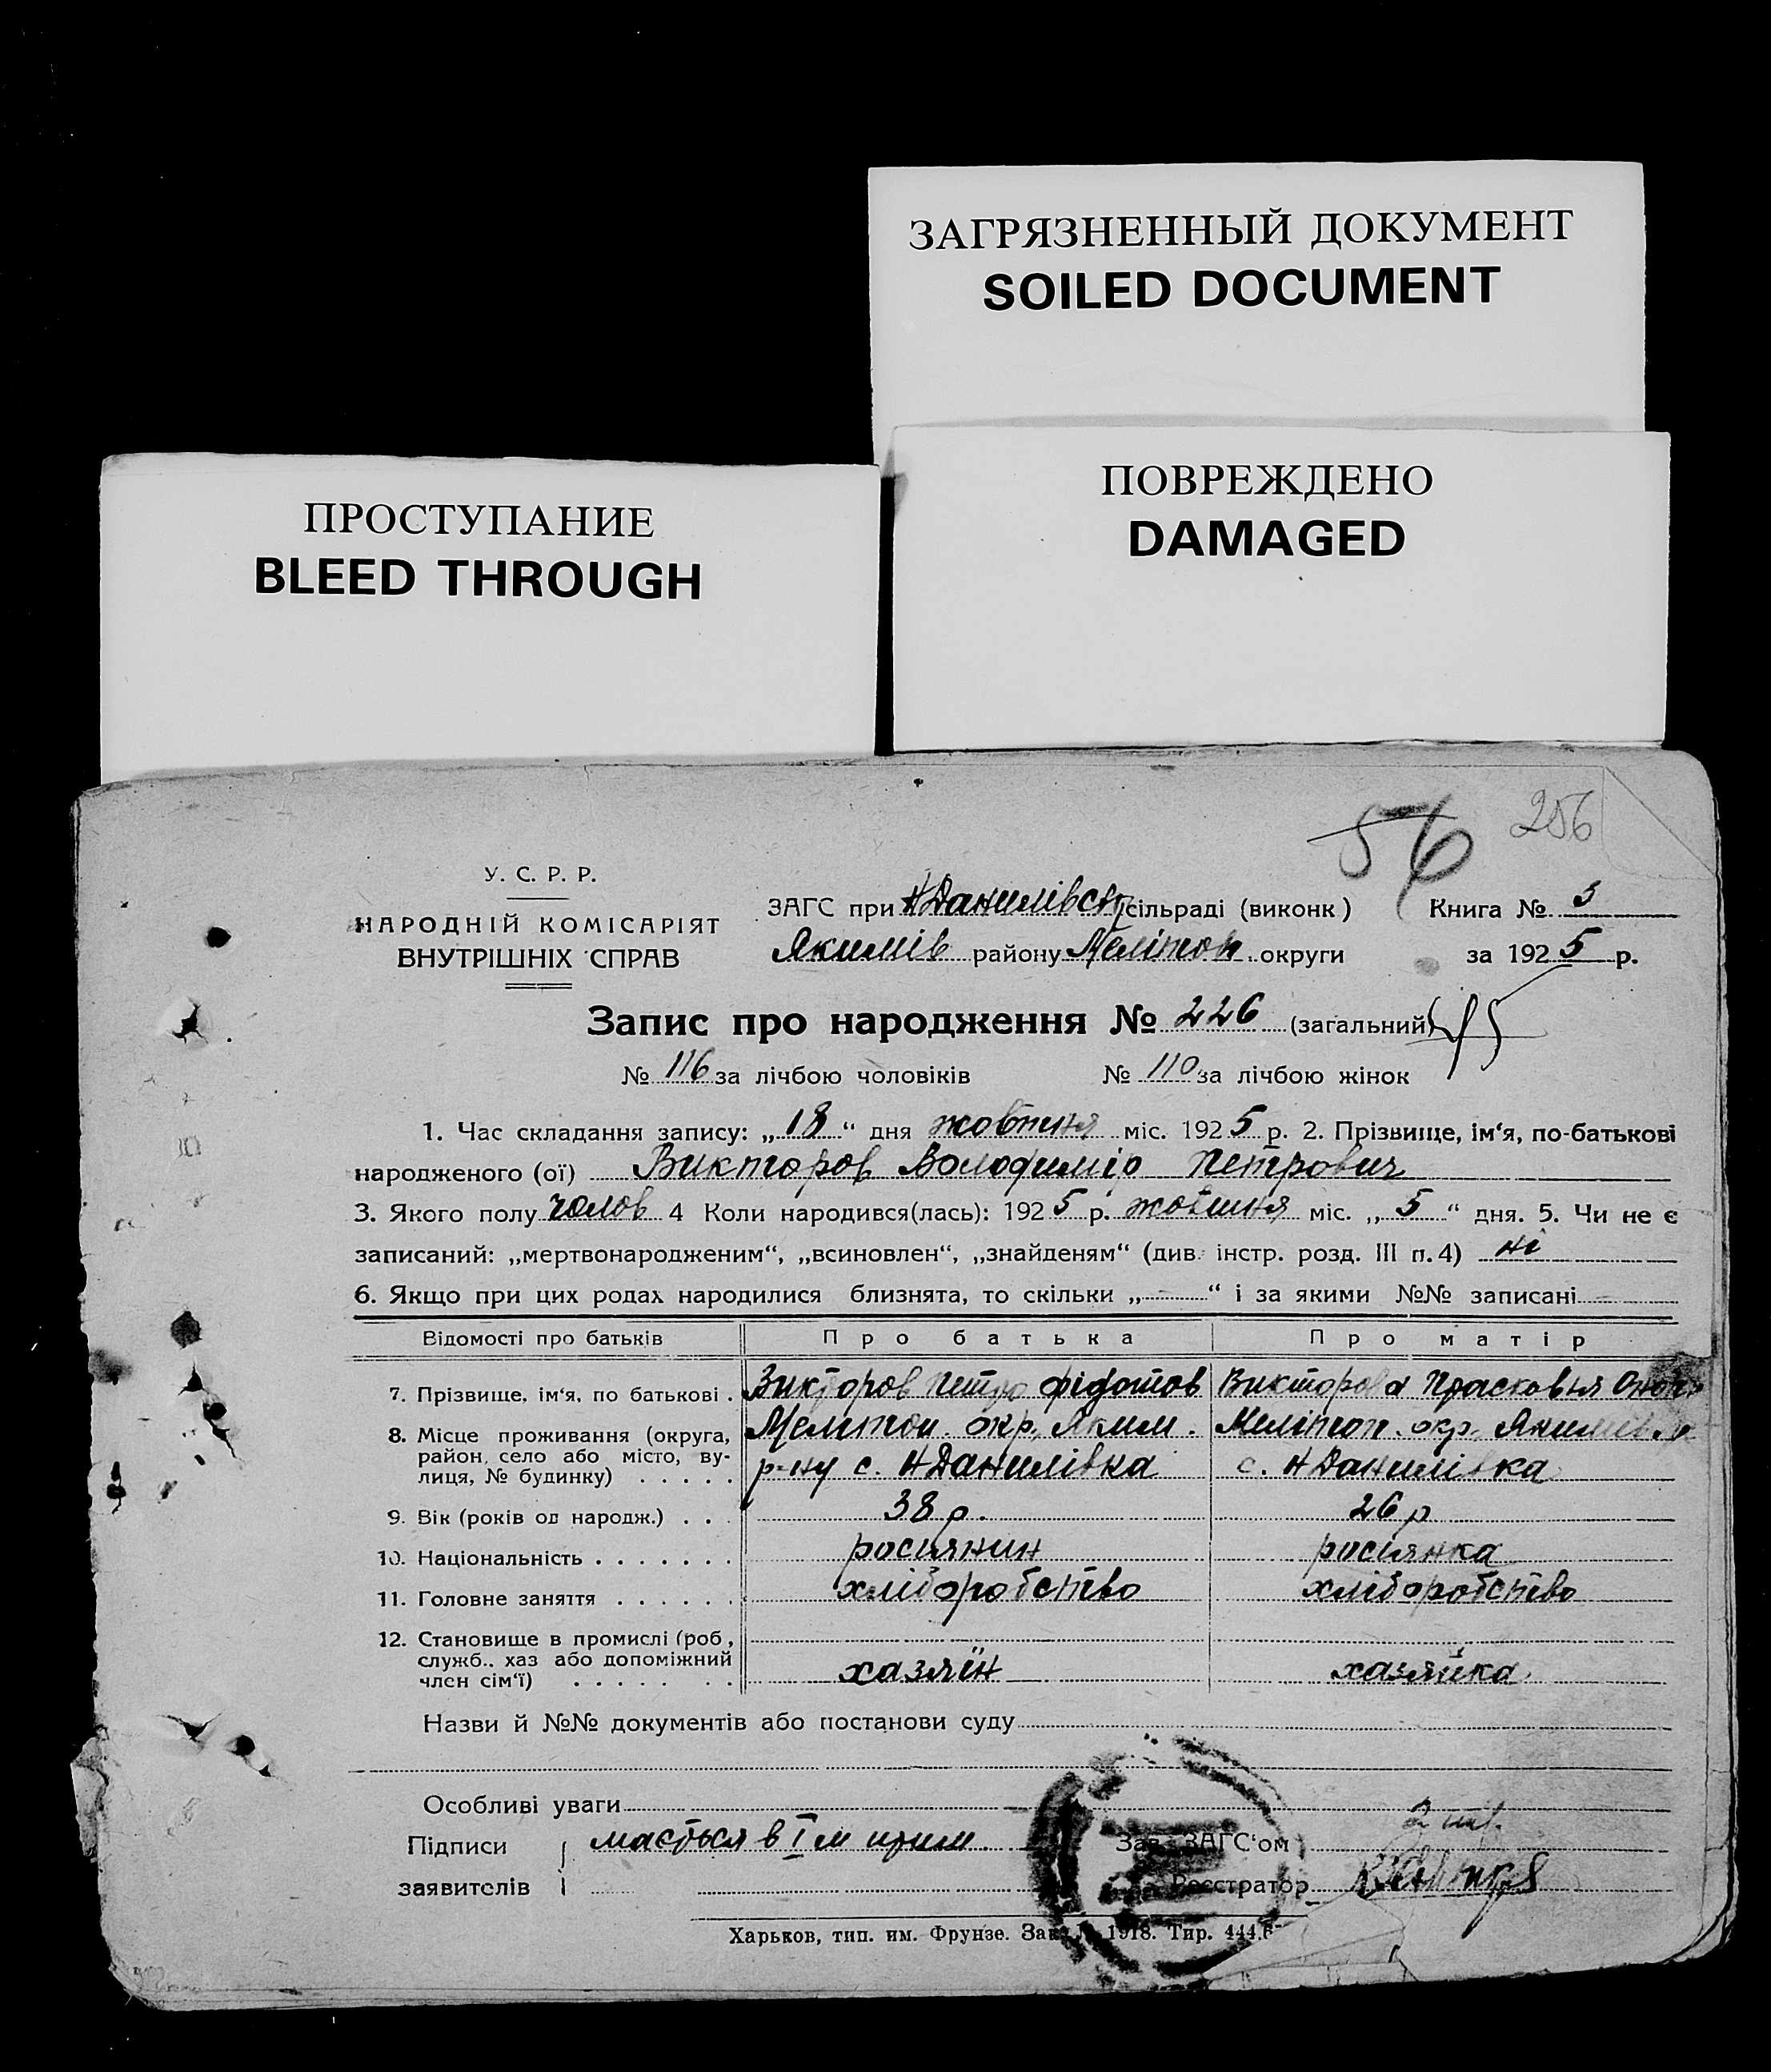 ЗАГРЯЗНЕННЫЙ ДОКУМЕНТ
SOILED DOCUMENT
ПОВРЕЖДЕНО
DAMAGED
ПРОСТУПАНИЕ
BLEED THROUGH
56 256
У. С. Р. Р.
НАРОДНІЙ КОМІСАРІЯТ
ВНУТРІШНІХ СПРАВ
ЗАГС при Н Данилівськ сільраді (виконк) Книга № 3
Якимів району Мелітоп. округи за 1925 р.
Запис про народження № 226 (загальний)
№ 116 за лічбою чоловіків № 110 за лічбою жінок
1. Час складання запису: „18“ дня жовтня міс. 1925 р. 2. Прізвище, ім‘я, по-батькові
народженого (ої) Викторов Володимір Петрович
3. Якого полу чолов 4 Коли народився(лась): 1925 р. жовтня міс. „5“ дня. 5. Чи не є
записаний: „мертвонародженим“, „всиновлен“, „знайденям“ (див. інстр. розд. III п. 4) ні
6. Якщо при цих родах народилися близнята, то скільки „ “ і за якими №№ записані
Відомості про батьків Про батька Про матір
7. Прізвище, ім‘я, по батькові . Викторов Петро Фідотов Викторова Прасковья
8. Місце проживання (округа, Мелітоп. окр., Яким. Мелітоп. окр., Якимів
район, село або місто, ву-
лиця, № будинку) . . . . . р-ну с. Н Данилівка с. Н Данилівка
9. Вік (років од народж.) . . . 38 р. 26 р
10. Національність . . . . . . . росиянин росиянка
11. Головне заняття . . . . . . хліборобство хліборобство
12. Становище в промислі (роб,
служб.. хаз або допоміжний
член сім‘ї) . . . . . . . хазяїн хазяйка
Назви й №№ документів або постанови суду
Особливі уваги
Підписи мається в І м прим. Зав. ЗАГС‘ом
заявителів Реєстратор
Харьков, тип. им. Фрунзе. Зак. № 1918. Тир. 444.